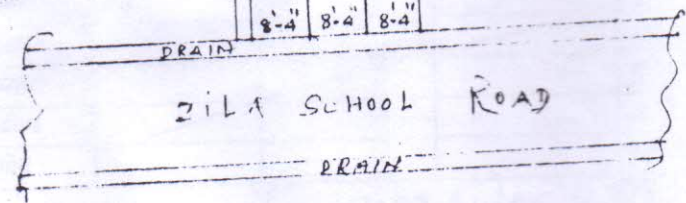 8'-4" 8'-4" 8'-4"
DRAIN
ZILA SCHOOL ROAD
DRAIN